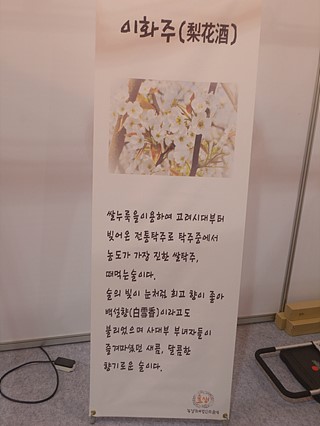 이화주(梨花酒)
쌀누룩을이용하여 고려시대부터
빚어온 전통탁주로 탁주중에서
농도가 가장 진한 쌀탁주,
떠먹는술이다.
술의 빛이 눈처럼 희고 향이 좋아
백설향(白雪香)이라고도
불리었으며 사대부 부녀자들이
즐겨마셨던 새콤, 달콤한
향기로운 술이다.